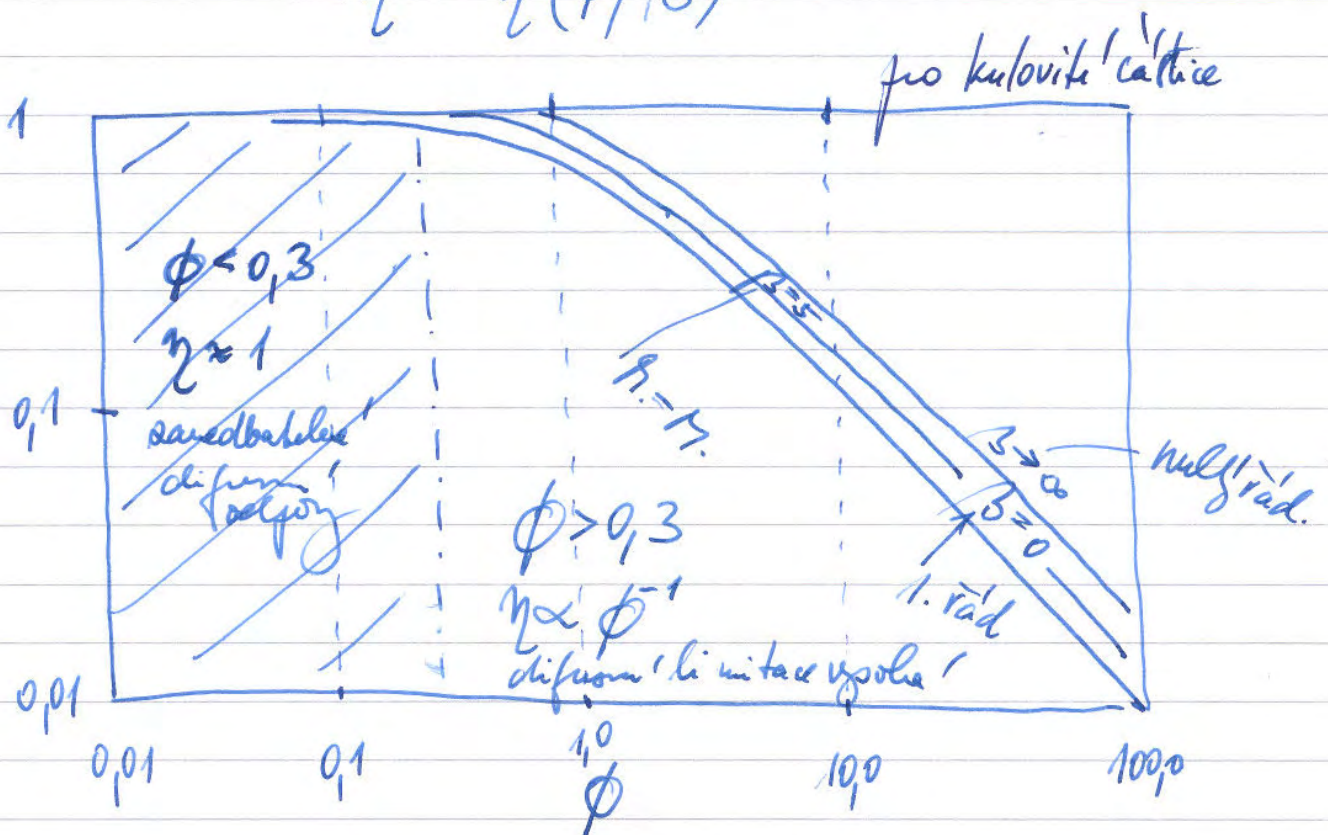 pro kulovité částice
1
ϕ < 0,3
η ≈ 1
zanedbatelné
difusní
odpory
0,1
β = 5
β → ∞
nultý řád.
β = 0
1. řád
ϕ > 0,3
η ∝ ϕ⁻¹
difusní limitace vysoká
0,01
0,01
0,1
1,0
10,0
100,0
ϕ